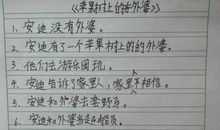 《苹果树上的外婆》
1、安迪没有外婆。
2、安迪有了一个苹果树上的的外婆。
3、他们去游乐园玩。
4、安迪告诉了家里人，家里人不相信。
5、安迪和外婆去套野马。
6、安迪和外婆当起船员。